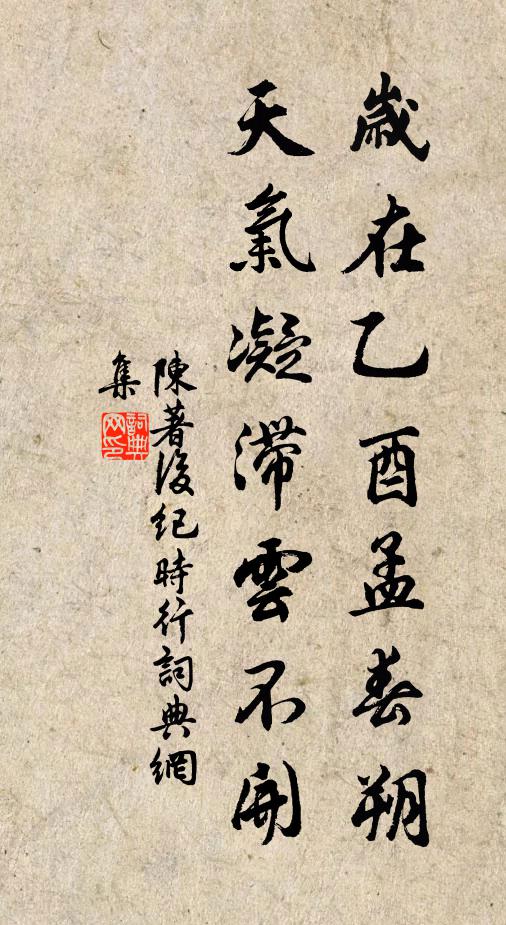 歲在乙酉孟春朔
天氣凝滯雲不開
陳著後紀時行詞典網
集
詞典网印